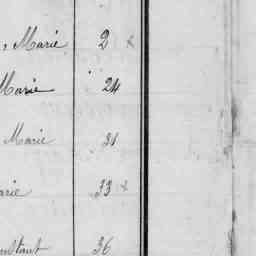 , Marie 2 x
Marie 24
Marie 31
arie 33 x
nstant 36